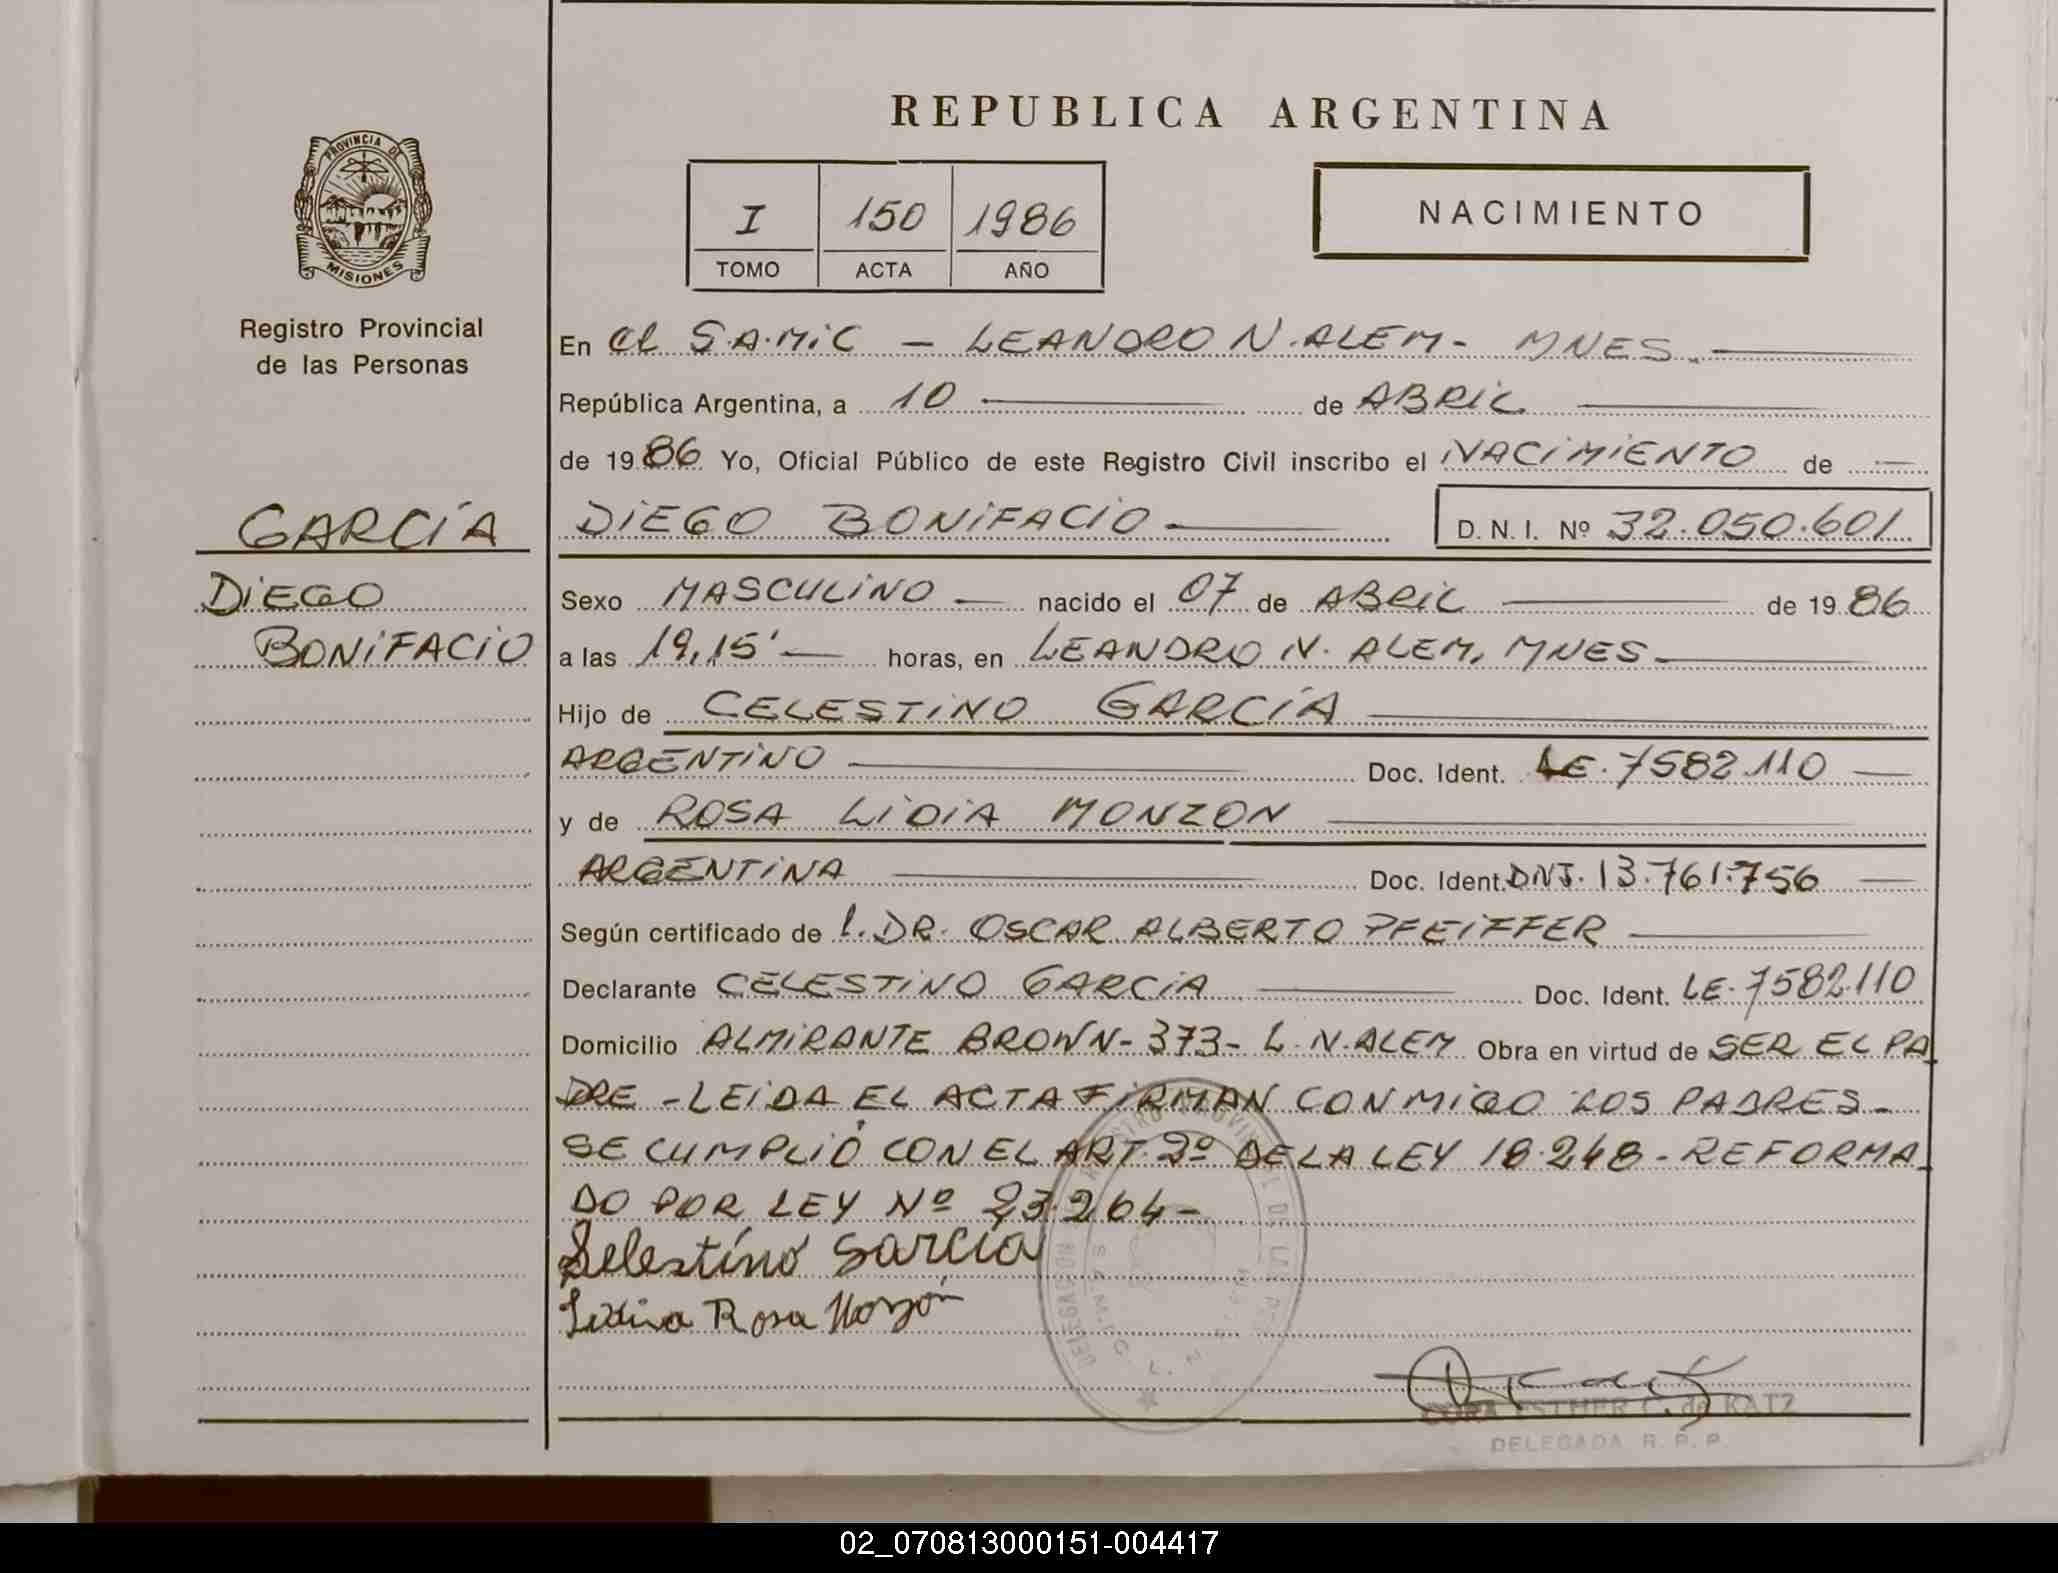 REPUBLICA ARGENTINA
PROVINCIA DE
MISIONES
Registro Provincial
de las Personas
I 150 1986
TOMO ACTA AÑO
NACIMIENTO
En el S.A.MiC - LEANDRO N. ALEM - MNES.
República Argentina, a 10 de ABRIL
de 1986 Yo, Oficial Público de este Registro Civil inscribo el NACIMIENTO de
GARCÍA
DIEGO BONIFACIO
D. N. I. Nº 32.050.601
DIEGO
BONIFACIO
Sexo MASCULINO nacido el 07 de ABRIL de 1986
a las 19,15' horas, en LEANDRO N. ALEM, MNES
Hijo de CELESTINO GARCÍA
ARGENTINO Doc. Ident. LE. 7582.110
y de ROSA LIDIA MONZON
ARGENTINA Doc. Ident. DNI. 13.761.756
Según certificado de l. DR. OSCAR ALBERTO PFEIFFER
Declarante CELESTINO GARCIA Doc. Ident. LE. 7582.110
Domicilio ALMIRANTE BROWN - 373 - L. N. ALEM Obra en virtud de SER EL PA
DRE - LEIDA EL ACTA FIRMAN CONMIGO LOS PADRES -
SE CUMPLIÓ CON EL ART. 2º DE LA LEY 18.248 - REFORMA
DO POR LEY Nº 23.264 -
Selestino Garcia
Lidia Rosa Monzón
DELEGACION REGISTRO PROVINCIAL DE LAS
S.A.M.I.C. L. N.
CORA ESTHER C. de KATZ
DELEGADA R. P. P.
02_070813000151-004417